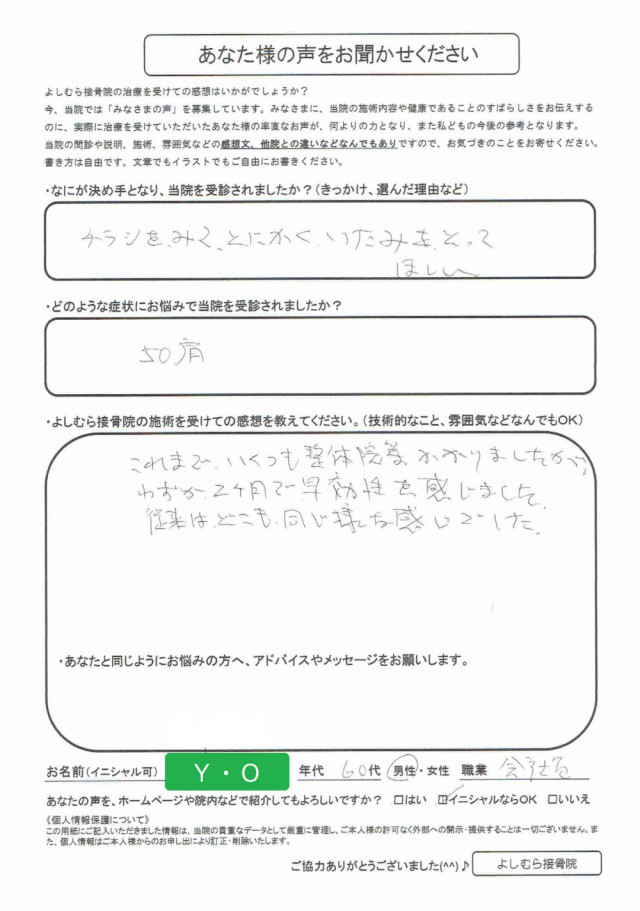 あなた様の声をお聞かせください
よしむら接骨院の治療を受けての感想はいかがでしょうか？
今、当院では「みなさまの声」を募集しています。みなさまに、当院の施術内容や健康であることのすばらしさをお伝えする
のに、実際に治療を受けていただいたあなた様の率直なお声が、何よりの力となり、また私どもの今後の参考となります。
当院の問診や説明、施術、雰囲気などの感想文、他院との違いなどなんでもありですので、お気づきのことをお寄せください。
書き方は自由です。文章でもイラストでもご自由にお書きください。
・なにが決め手となり、当院を受診されましたか？（きっかけ、選んだ理由など）
チラシを、みて、とにかく、いたみを、とって
ほしい
・どのような症状にお悩みで当院を受診されましたか？
50肩
・よしむら接骨院の施術を受けての感想を教えてください。（技術的なこと、雰囲気などなんでもOK）
これまで、いくつも整体院等かかりましたが、
わずか2ヶ月で早効性を感じました。
従来は、どこも、同じ様な感じでした。
・あなたと同じようにお悩みの方へ、アドバイスやメッセージをお願いします。
お名前（イニシャル可） Y・O 年代 60代 男性・女性 職業 会社員
あなたの声を、ホームページや院内などで紹介してもよろしいですか？ □はい ☑イニシャルならOK □いいえ
《個人情報保護について》
この用紙にご記入いただきました情報は、当院の貴重なデータとして厳重に管理し、ご本人様の許可なく外部への開示・提供することは一切ございません。ま
た、個人情報はご本人様からのお申し出により訂正・削除いたします。
ご協力ありがとうございました(^^)♪ よしむら接骨院